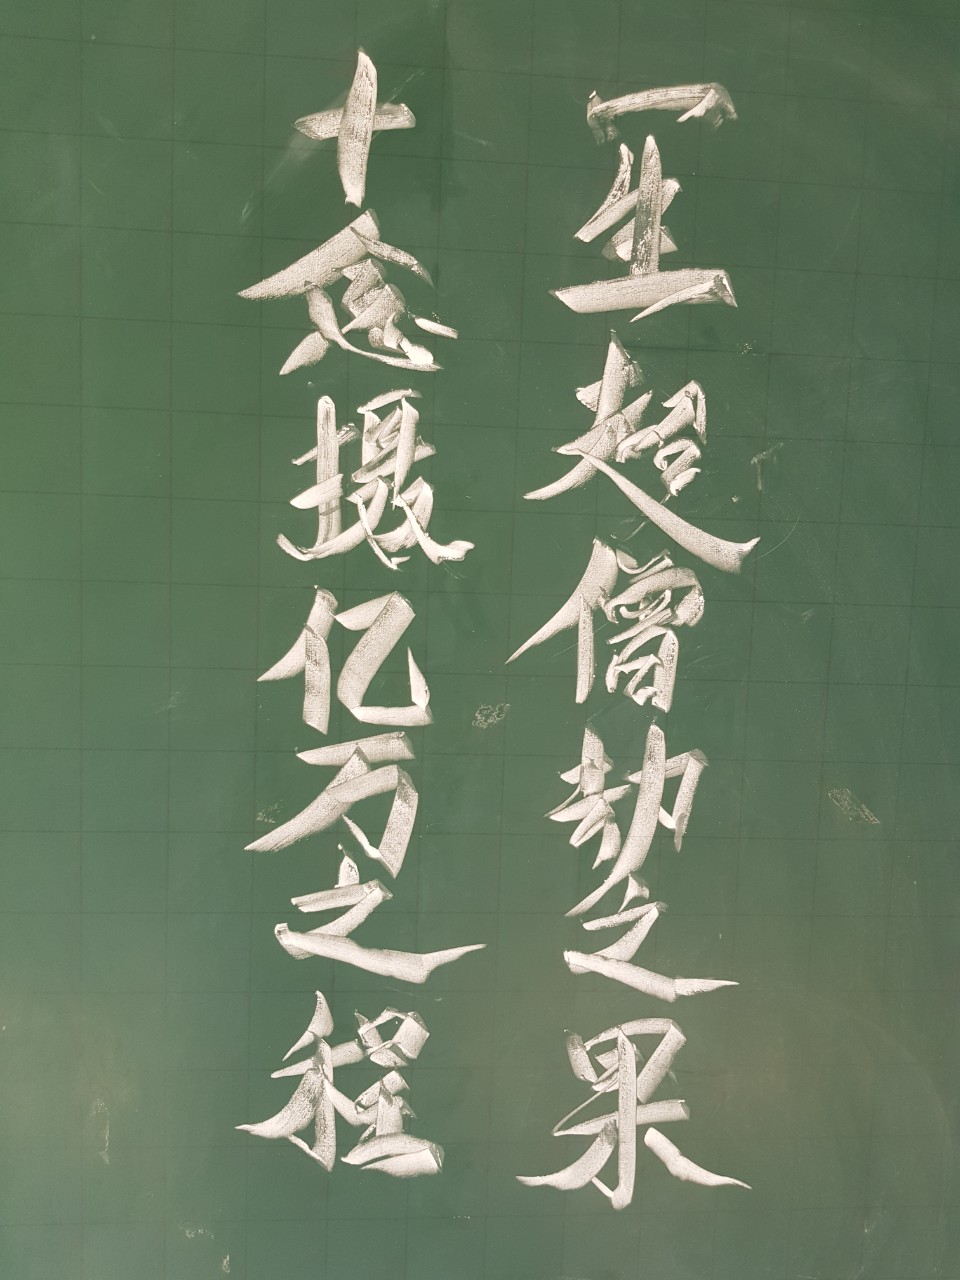 一生超僧劫之果
十念摄亿万之程